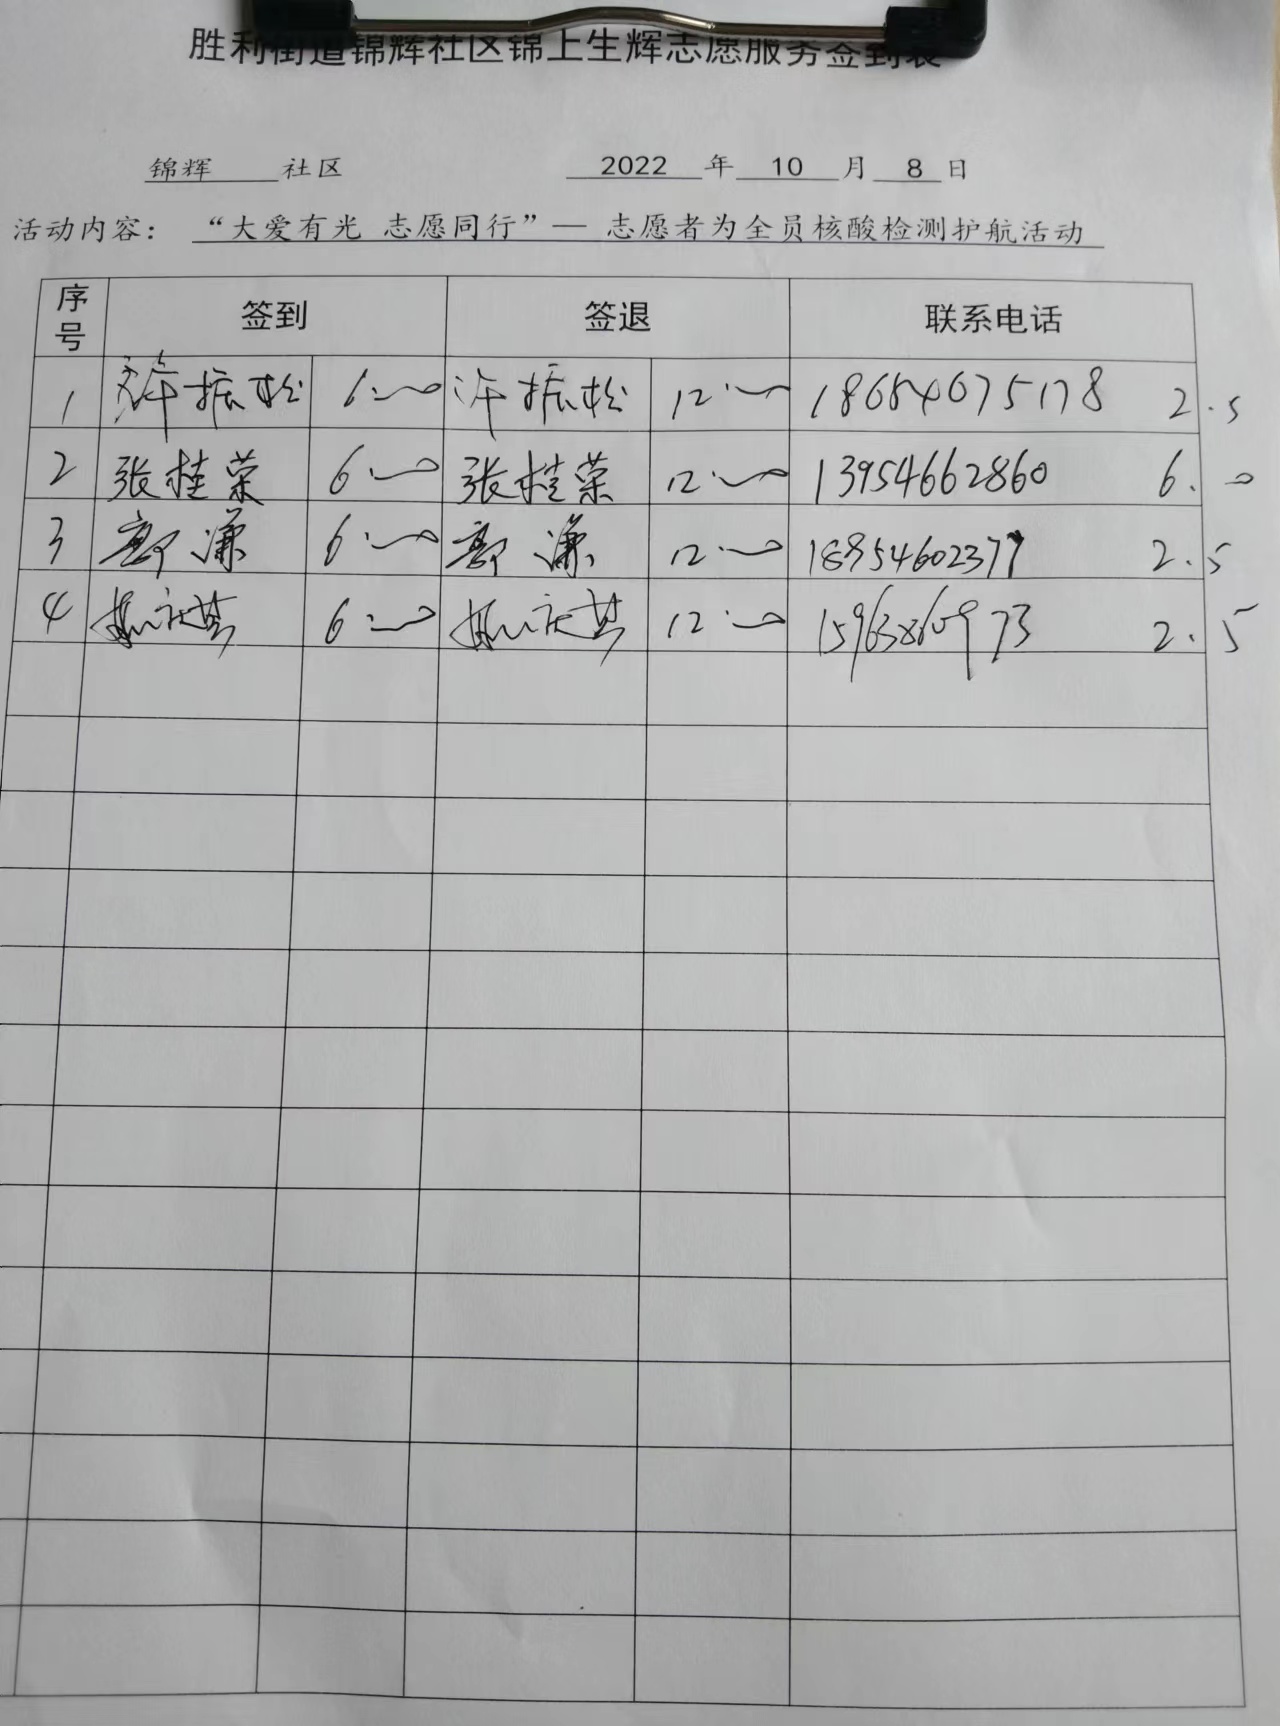 胜利街道锦辉社区锦上生辉志愿服务签到表
锦辉 社区 2022 年 10 月 8 日
活动内容： “大爱有光 志愿同行”— 志愿者为全员核酸检测护航活动
序号 签到 签退 联系电话
1 许振松 6:00 许振松 12:00 18684675178 2.5
2 张桂荣 6:00 张桂荣 12:00 13954662860 6.0
3 郭谦 6:00 郭谦 12:00 18954602377 2.5
4 6:00 12:00 2.5